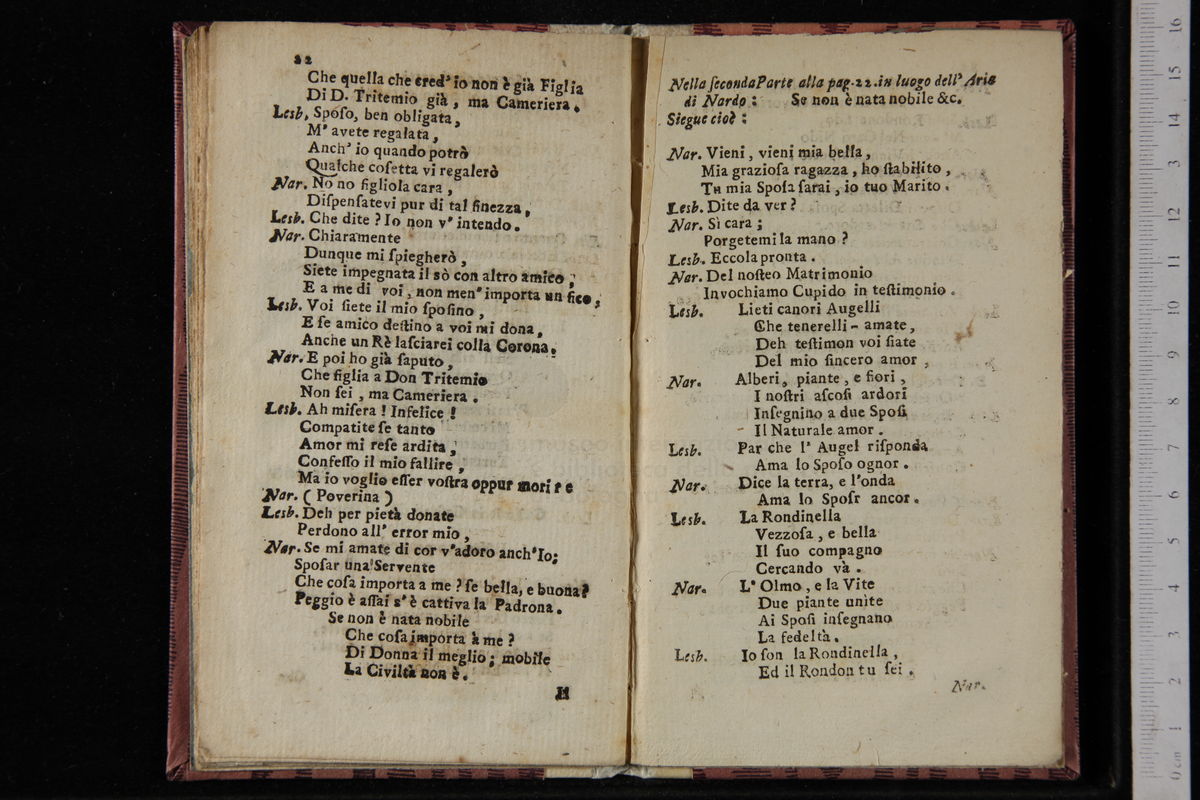 22
Che quella che cred' io non è già Figlia
Di D. Tritemio già, ma Cameriera.
Lesb. Spoſo, ben obligata,
M' avete regalata,
Anch' io quando potrò
Qualche coſetta vi regalerò
Nar. No no figliola cara,
Diſpenſatevi pur di tal finezza,
Lesb. Che dite? Io non v' intendo.
Nar. Chiaramente
Dunque mi ſpiegherò,
Siete impegnata il sò con altro amico,
E a me di voi, non men' importa un fico,
Lesb. Voi ſiete il mio ſpoſino,
E ſe amico deſtino a voi mi dona,
Anche un Rè laſciarei colla Corona.
Nar. E poi ho già ſaputo,
Che figlia a Don Tritemio
Non ſei, ma Cameriera.
Lesb. Ah miſera! Infelice!
Compatite ſe tanto
Amor mi reſe ardita,
Confeſſo il mio fallire,
Ma io voglio eſſer voſtra oppur morire
Nar. (Poverina)
Lesb. Deh per pietà donate
Perdono all' error mio,
Nar. Se mi amate di cor v'adoro anch'Io;
Spoſar una Servente
Che coſa importa a me? ſe bella, e buona?
Peggio è aſſai s' è cattiva la Padrona.
Se non è nata nobile
Che coſa importa à me?
Di Donna il meglio; mobile
La Civiltà non è.
Nella ſeconda Parte alla pag. 22. in luogo dell' Aria
di Nardo: Se non è nata nobile &c.
Siegue cioè:
Nar. Vieni, vieni mia bella,
Mia grazioſa ragazza, ho ſtabilito,
Tu mia Spoſa ſarai, io tuo Marito.
Lesb. Dite da ver?
Nar. Sì cara;
Porgetemi la mano?
Lesb. Eccola pronta.
Nar. Del noſteo Matrimonio
Invochiamo Cupido in teſtimonio.
Lesb. Lieti canori Augelli
Che tenerelli - amate,
Deh teſtimon voi ſiate
Del mio ſincero amor,
Nar. Alberi, piante, e fiori,
I noſtri aſcoſi ardori
Inſegnino a due Spoſi
Il Naturale amor.
Lesb. Par che l' Augel riſponda
Ama lo Spoſo ognor.
Nar. Dice la terra, e l'onda
Ama lo Spoſr ancor.
Lesb. La Rondinella
Vezzoſa, e bella
Il ſuo compagno
Cercando và.
Nar. L' Olmo, e la Vite
Due piante unite
Ai Spoſi inſegnano
La fedeltà.
Lesb. Io ſon la Rondinella,
Ed il Rondon tu ſei.
Nar.